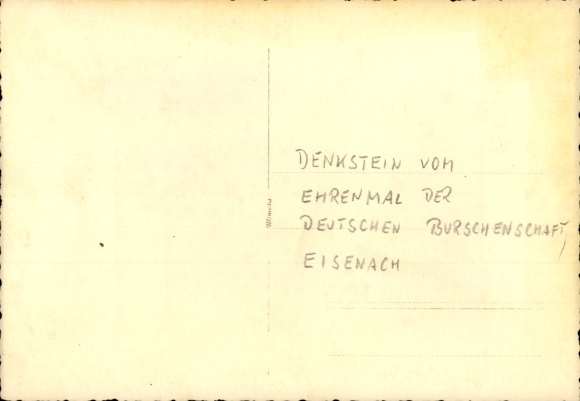 DENKSTEIN VOM
EHRENMAL DER
DEUTSCHEN BURSCHENSCHAFT,
EISENACH